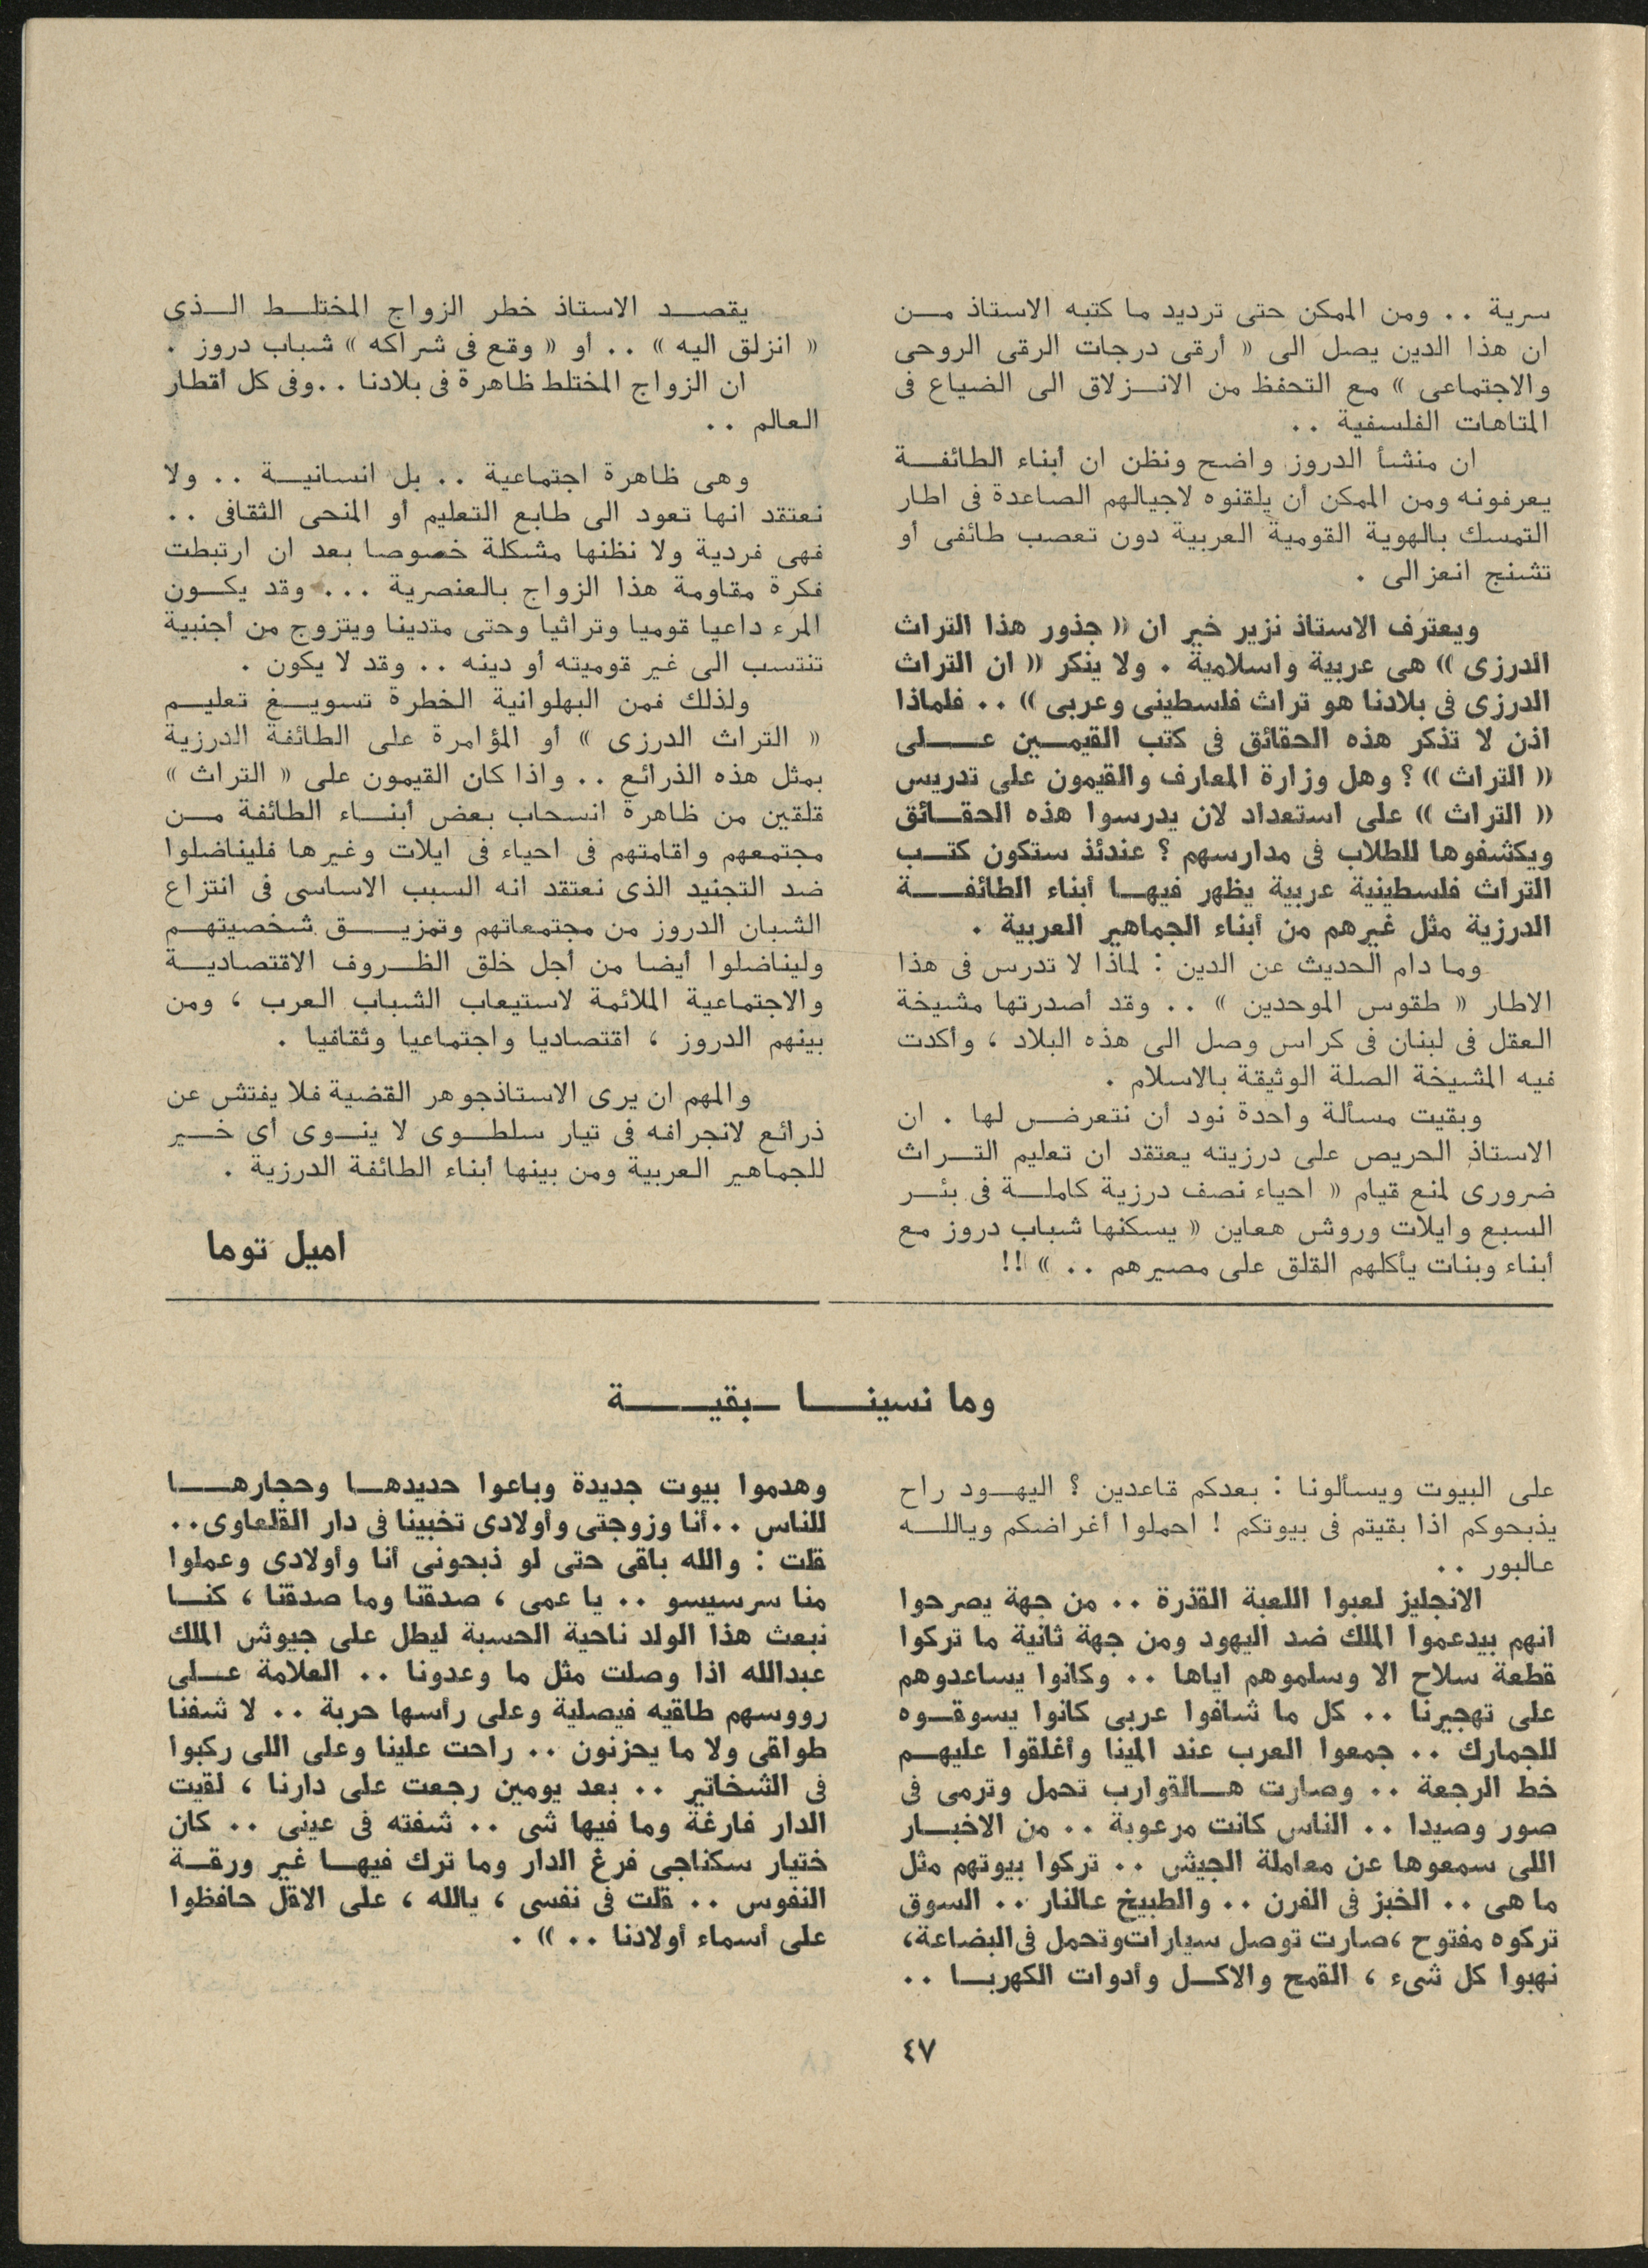 سرية .. ومن الممكن حتى ترديد ما كتبه الاستاذ من
ان هذا الدين يصل الى « أرقى درجات الرقى الروحى
والاجتماعى » مع التحفظ من الانزلاق الى الضياع فى
المتاهات الفلسفية ..
ان منشأ الدروز واضح ونظن ان أبناء الطائفة
يعرفونه ومن الممكن أن يلقنوه لاجيالهم الصاعدة فى اطار
التمسك بالهوية القومية العربية دون تعصب طائفى أو
تشنج انعزالى .
ويعترف الاستاذ نزير خير ان « جذور هذا التراث
الدرزى » هى عربية واسلامية . ولا ينكر « ان التراث
الدرزى فى بلادنا هو تراث فلسطينى وعربى » .. فلماذا
اذن لا تذكر هذه الحقائق فى كتب القيمين على
« التراث » ؟ وهل وزارة المعارف والقيمون على تدريس
« التراث » على استعداد لان يدرسوا هذه الحقائق
ويكشفوها للطلاب فى مدارسهم ؟ عندئذ ستكون كتب
التراث فلسطينية عربية يظهر فيها أبناء الطائفة
الدرزية مثل غيرهم من أبناء الجماهير العربية .
وما دام الحديث عن الدين : لماذا لا تدرس فى هذا
الاطار « طقوس الموحدين » .. وقد أصدرتها مشيخة
العقل فى لبنان فى كراس وصل الى هذه البلاد ، وأكدت
فيه المشيخة الصلة الوثيقة بالاسلام .
وبقيت مسألة واحدة نود أن نتعرض لها . ان
الاستاذ الحريص على درزيته يعتقد ان تعليم التراث
ضرورى لمنع قيام « احياء نصف درزية كاملة فى بئر
السبع وايلات وروش هعاين « يسكنها شباب دروز مع
أبناء وبنات يأكلهم القلق على مصيرهم .. » !!
يقصد الاستاذ خطر الزواج المختلط الذى
« انزلق اليه » .. أو « وقع فى شراكه » شباب دروز .
ان الزواج المختلط ظاهرة فى بلادنا ..وفى كل أقطار
العالم ..
وهى ظاهرة اجتماعية .. بل انسانية .. ولا
نعتقد انها تعود الى طابع التعليم أو المنحى الثقافى ..
فهى فردية ولا نظنها مشكلة خصوصا بعد ان ارتبطت
فكرة مقاومة هذا الزواج بالعنصرية ... وقد يكون
المرء داعيا قوميا وتراثيا وحتى متدينا ويتزوج من أجنبية
تنتسب الى غير قوميته أو دينه .. وقد لا يكون .
ولذلك فمن البهلوانية الخطرة تسويغ تعليم
« التراث الدرزى » أو المؤامرة على الطائفة الدرزية
بمثل هذه الذرائع .. واذا كان القيمون على « التراث »
قلقين من ظاهرة انسحاب بعض أبناء الطائفة من
مجتمعهم واقامتهم فى احياء فى ايلات وغيرها فليناضلوا
ضد التجنيد الذى نعتقد انه السبب الاساسى فى انتزاع
الشبان الدروز من مجتمعاتهم وتمزيق شخصيتهم
وليناضلوا أيضا من أجل خلق الظروف الاقتصادية
والاجتماعية الملائمة لاستيعاب الشباب العرب ، ومن
بينهم الدروز ، اقتصاديا واجتماعيا وثقافيا .
والمهم ان يرى الاستاذ جوهر القضية فلا يفتش عن
ذرائع لانجرافه فى تيار سلطوى لا ينوى أى خير
للجماهير العربية ومن بينها أبناء الطائفة الدرزية .
اميل توما
وما نسينا – بقية
على البيوت ويسألونا : بعدكم قاعدين ؟ اليهود راح
يذبحوكم اذا بقيتم فى بيوتكم ! احملوا أغراضكم وياالله
عالبور ..
الانجليز لعبوا اللعبة القذرة .. من جهة يصرحوا
انهم بيدعموا الملك ضد اليهود ومن جهة ثانية ما تركوا
قطعة سلاح الا وسلموهم اياها .. وكانوا يساعدوهم
على تهجيرنا .. كل ما شافوا عربى كانوا يسوقوه
للجمارك .. جمعوا العرب عند المينا وأغلقوا عليهم
خط الرجعة .. وصارت هالقوارب تحمل وترمى فى
صور وصيدا .. الناس كانت مرعوبة .. من الاخبار
اللى سمعوها عن معاملة الجيش .. تركوا بيوتهم مثل
ما هى .. الخبز فى الفرن .. والطبيخ عالنار .. السوق
تركوه مفتوح ،صارت توصل سيارات وتحمل فى البضاعة،
نهبوا كل شىء ، القمح والاكل وأدوات الكهربا ..
وهدموا بيوت جديدة وباعوا حديدها وحجارها
للناس ..أنا وزوجتى وأولادى تخبينا فى دار القلعاوى..
قلت : والله باقى حتى لو ذبحونى أنا وأولادى وعملوا
منا سرسيسو .. يا عمى ، صدقنا وما صدقنا ، كنا
نبعث هذا الولد ناحية الحسبة ليطل على جيوش الملك
عبدالله اذا وصلت مثل ما وعدونا .. العلامة على
رووسهم طاقيه فيصلية وعلى رأسها حربة .. لا شفنا
طواقى ولا ما يحزنون .. راحت علينا وعلى اللى ركبوا
فى الشخاتير .. بعد يومين رجعت على دارنا ، لقيت
الدار فارغة وما فيها شى .. شفته فى عينى .. كان
ختيار سكناجى فرغ الدار وما ترك فيها غير ورقة
النفوس .. قلت فى نفسى ، يالله ، على الاقل حافظوا
على أسماء أولادنا .. » .
٤٧